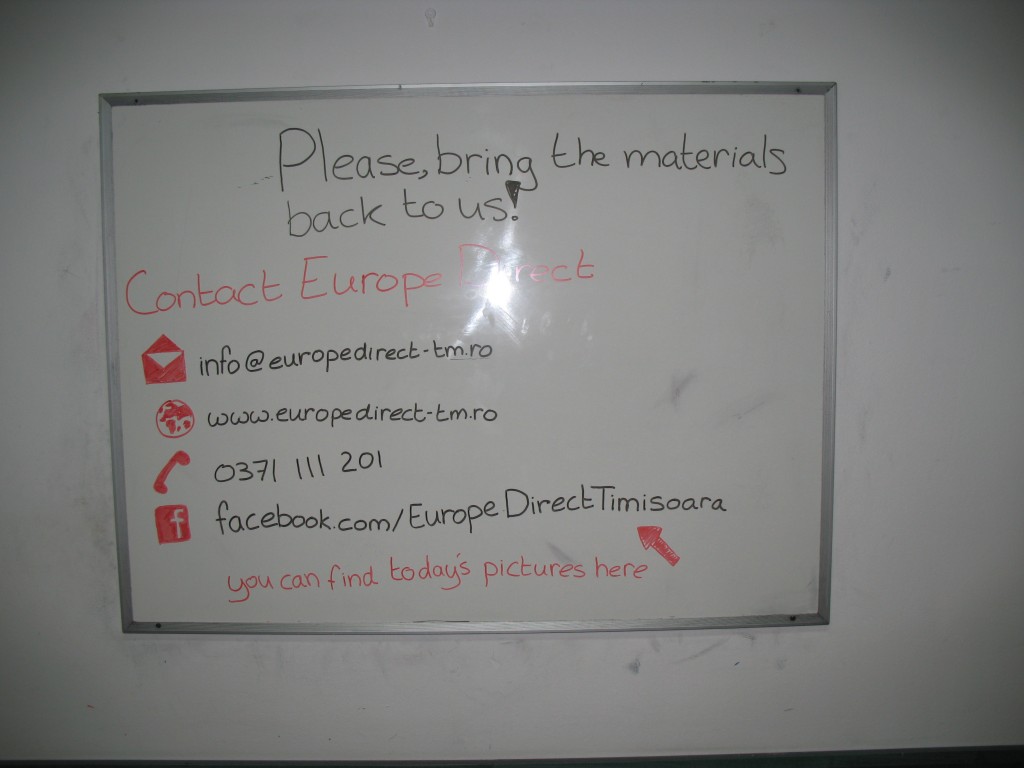 Please, bring the materials
back to us!
Contact Europe Direct
info@europedirect-tm.ro
www.europedirect-tm.ro
0371 111 201
f facebook.com/EuropeDirectTimisoara
you can find today's pictures here